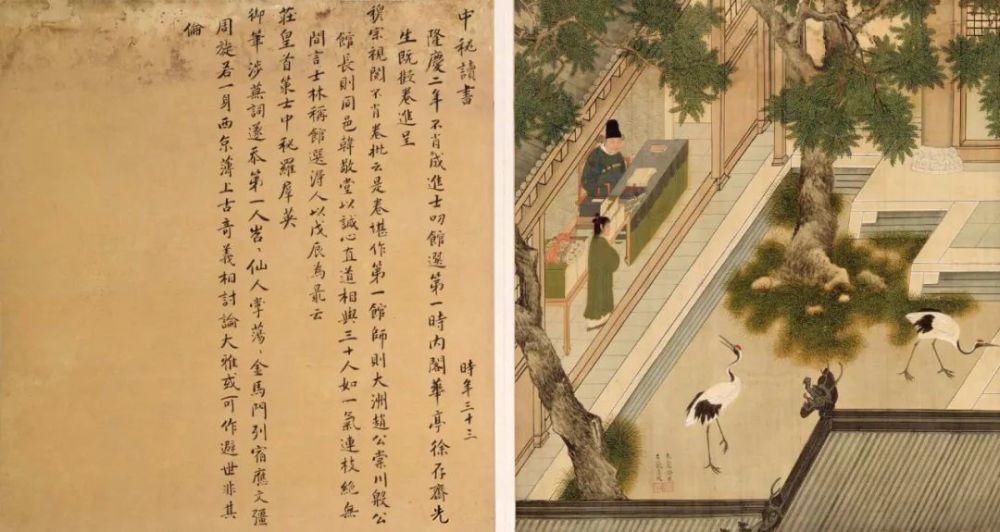 中秘讀書 時年三十三
隆慶二年不肖成進士叨館選第一時內閣華亭徐存齋先
生既擬卷進呈
穆宗視閱不肖卷批云是卷堪作第一館師則大洲趙公棠川殷公
館長則同邑韓敬堂以誠心直道相與三十人如一氣連枝絕無
間言士林稱館選淂人以戊辰為最云
莊皇首策士中秘羅羣英
御筆涉蕪詞遂忝第一人岧、仙人掌蕩、金馬門列宿應文彊
周旋若一身西京薄上古奇義相討論大雅或可作避世非其
倫